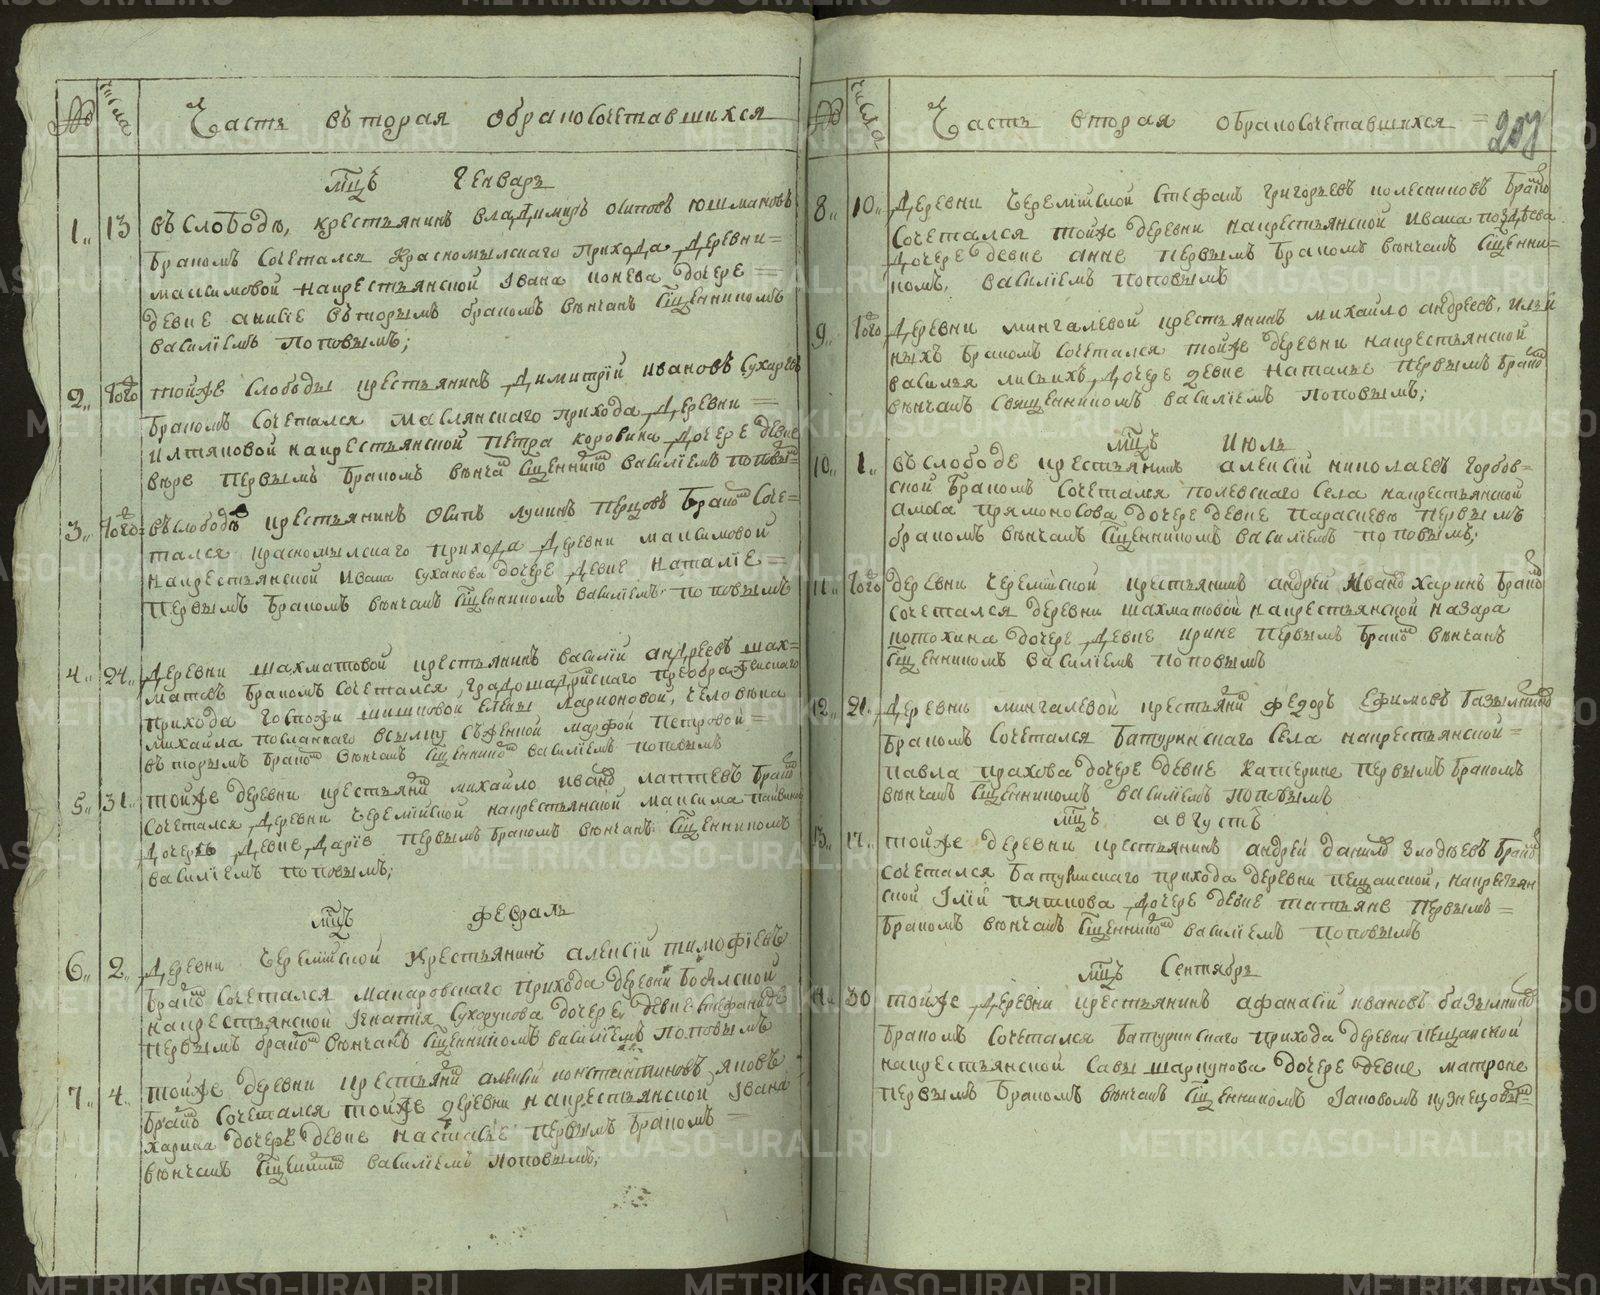 № числа Часть въторая обракосочетавшихся
мцъ Генварь
1,, 13 въ слободѣ, крестьянинъ владимиръ осиповъ юшмановъ
бракомъ сочетался красномыльскаго прихода деревни=
максимовой накрестьянской Ивана конева дочере =
девке анисїе въторымъ бракомъ венчанъ сщенникомъ
василїемъ поповымъ;
2,, того тойже слободы крестьянинъ димитрїй ивановъ сухаревъ
бракомъ сочетался маслянскаго прихода деревни =
илтяковой накрестьянской петра коровина дочере девке
вере первымъ бракомъ венчанъ сщенникомъ василїемъ поповымъ
3,, того въ слободѣ крестьянинъ осипъ лукинъ перцовъ бракомъ соче=
тался красномылскаго прихода деревни максимовой
накрестьянской ивана суханова дочере девке наталїе =
первымъ бракомъ венчанъ сщенникомъ василїемъ поповымъ
4,, 24,, деревни шахматовой крестьянинъ василїй андреевъ шах=
матовъ бракомъ сочетался, градошадринскаго преображенскаго
прихода госпожи шишковой елены ларионовой, человека
михайла посланнаго всылку съ женкой марфой петровой =
въторымъ бракомъ венчанъ сщенникомъ василїемъ поповымъ
5,, 31,, тойже деревни крестьянинъ михайло иванов лаптевъ бракомъ
сочетался деревни черемїской накрестьянской максима
дочерѣ девке дарїе первымъ бракомъ венчанъ сщенникомъ
василїемъ поповымъ;
мцъ февраль
6,, 2,, деревни черемїской крестьянинъ алексїй тимофїевъ
бракомъ сочетался макаровскаго прихода деревни боярской
накрестьянской Игнатїя сухорукова дочере девке стефаниде
первымъ бракомъ венчанъ сщенникомъ василїемъ поповымъ
7,, 4,, тойже деревни крестьянинъ алексїй констянтиновъ яковъ
бракомъ сочетался тойже деревни накрестьянской Ивана
харина дочере девке настасье первымъ бракомъ =
венчанъ сщенникомъ василїемъ поповымъ;
№ числа Часть вторая обракосочетавшихся = 207
8,, 10,, деревни черемїской стефанъ григорьевъ колесниковъ бракомъ
сочетался тойже деревни накрестьянской ивана поздеева
дочере девке анне первымъ бракомъ венчанъ сщенни=
комъ, василїемъ поповымъ
9,, того деревни мингалевой крестьянинъ михайло андреевъ, ильи
ныхъ бракомъ сочетался тойже деревни накрестьянской
василья лисьихъ дочере девке наталье первымъ бракомъ
венчанъ священникомъ василїемъ поповымъ;
мцъ Июль
10,, 1,, въ слободе крестьянинъ алексїй николаевъ горбов=
ской бракомъ сочетался полевскаго села накрестьянской
амоса прямоносова дочере девке параскевю первымъ
бракомъ венчанъ сщенникомъ василїемъ поповымъ;
11,, того деревни черемїской крестьянинъ андрей иванов харинъ бракомъ
сочетался деревни шахматовой накрестьянской назара
потохина дочере девке ирине первымъ бракомъ венчанъ
сщенникомъ василїемъ поповымъ
12,, 21,, деревнѣ мингалевой крестьянинъ федоръ ефимовъ базыкиныхъ
бракомъ сочетался батуринскаго села накрестьянской =
павла прахова дочере девке катерине первымъ бракомъ
венчанъ сщенникомъ василїемъ поповымъ
мцъ августъ
13,, 17,, тойже деревни крестьянинъ андрей данилов злодеевъ бракомъ
сочетался батуринскаго прихода деревни пещанской, накрестьян
ской Илїи пяткова дочере девке татьяне первымъ =
бракомъ венчанъ сщенникомъ василїемъ поповымъ
мцъ Сентябрь
14,, 30 тойже деревни крестьянинъ афанасїй ивановъ базыкиныхъ
бракомъ сочетался батуринскаго прихода деревни пещанской
накрестьянской савы шаркунова дочере девке матроне
первымъ бракомъ венчанъ сщенникомъ Iаковомъ кузнецовымъ
METRIKI.GASO-URAL.RU